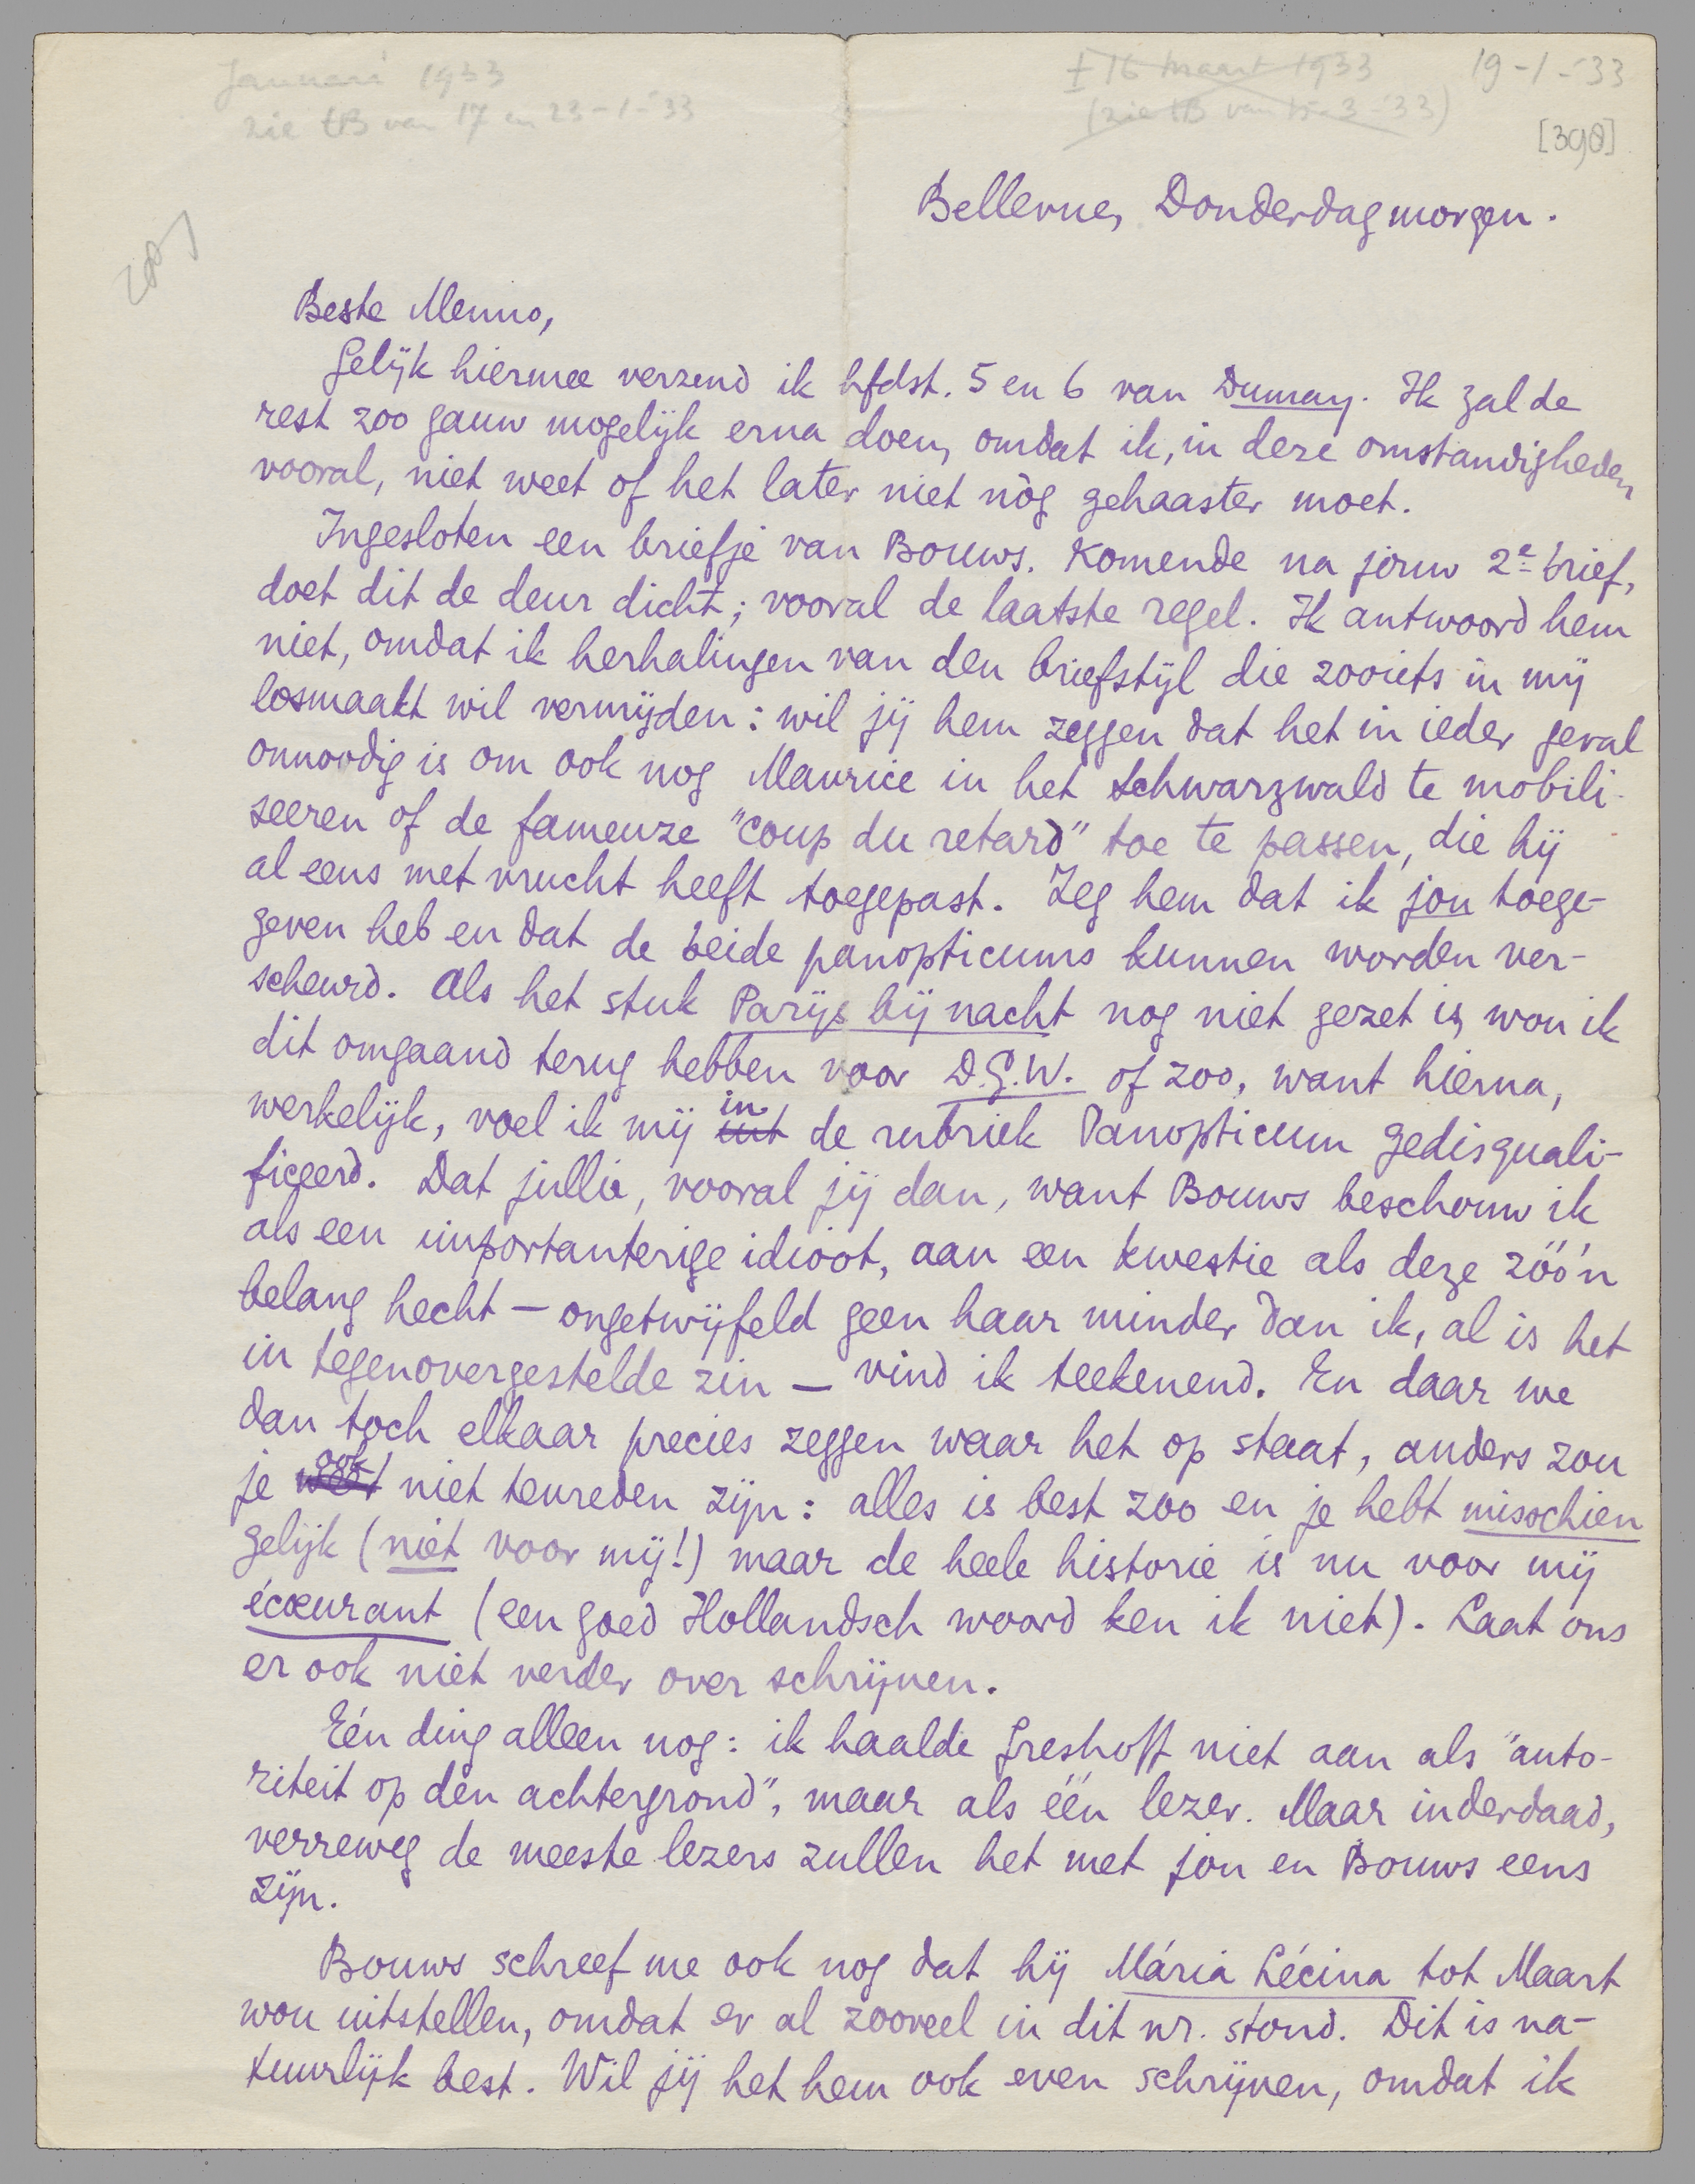 Januari 1933
zie tB van 17 en 23-1-'33
± 16 maart 1933
(zie tB van 15-3-'33)
19-1-'33
[398]
Bellevue, Donderdagmorgen.
Beste Menno,
Gelijk hiermee verzend ik hfdst. 5 en 6 van Dumay. Ik zal de
rest zoo gauw mogelijk erna doen, omdat ik, in deze omstandigheden
vooral, niet weet of het later niet nòg gehaaster moet.
Ingesloten een briefje van Bouws. Komende na jouw 2e brief,
doet dit de deur dicht; vooral de laatste regel. Ik antwoord hem
niet, omdat ik herhalingen van den briefstijl die zooiets in mij
losmaakt wil vermijden: wil jij hem zeggen dat het in ieder geval
onnoodig is om ook nog Maurice in het Schwarzwald te mobili-
seeren of de fameuze "coup du retard" toe te passen, die hij
al eens met vrucht heeft toegepast. Zeg hem dat ik jou toege-
geven heb en dat de beide panopticums kunnen worden ver-
scheurd. Als het stuk Parijs bij nacht nog niet gezet is, wou ik
dit omgaand terug hebben voor D.G.W. of zoo, want hierna,
werkelijk, voel ik mij in de rubriek Panopticum gedisquali-
ficeerd. Dat jullie, vooral jij dan, want Bouws beschouw ik
als een importanterige idioot, aan een kwestie als deze zóó'n
belang hecht — ongetwijfeld geen haar minder dan ik, al is het
in tegenovergestelde zin — vind ik teekenend. En daar we
dan toch elkaar precies zeggen waar het op staat, anders zou
je ook niet tevreden zijn: alles is best zoo en je hebt misschien
gelijk (niet voor mij!) maar de heele historie is nu voor mij
écœurant (een goed Hollandsch woord ken ik niet). Laat ons
er ook niet verder over schrijven.
Eén ding alleen nog: ik haalde Greshoff niet aan als "auto-
riteit op den achtergrond", maar als één lezer. Maar inderdaad,
verreweg de meeste lezers zullen het met jou en Bouws eens
zijn.
Bouws schreef me ook nog dat hij Mária Lécina tot Maart
wou uitstellen, omdat er al zooveel in dit nr. stond. Dit is na-
tuurlijk best. Wil jij het hem ook even schrijven, omdat ik